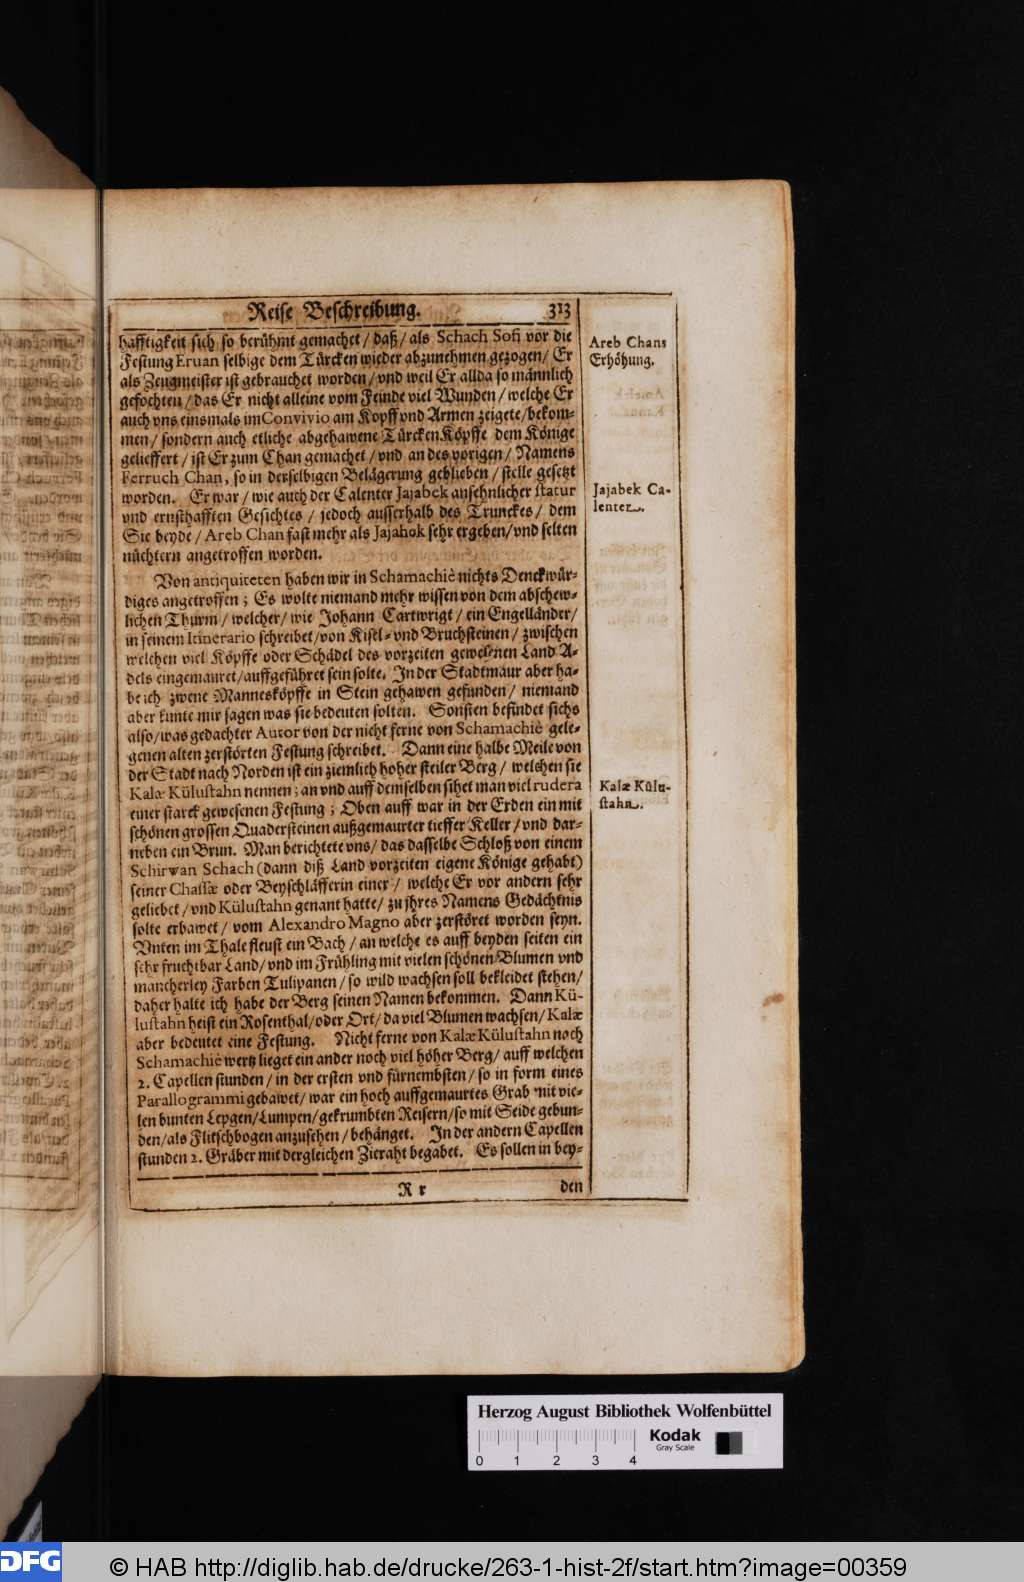 Reise Beschreibung. 313
hafftigkeit sich so berühmt gemachet / daß / als Schach Sofi vor die
Festung Eruan selbige dem Türcken wieder abzunehmen gezogen / Er
als Zeugmeister ist gebrauchet worden / vnd weil Er allda so männlich
gefochten / das Er nicht alleine vom Feinde viel Wunden / welche Er
auch vns einsmals im Convivio am Kopff vnd Armen zeigete / bekom-
men / sondern auch etliche abgehawene Türcken Köpffe dem Könige
gelieffert / ist Er zum Chan gemachet / vnd an des vorigen / Namens
Ferruch Chan, so in derselbigen Belägerung geblieben / stelle gesetzt
worden. Er war / wie auch der Calenter Jajabek ansehnlicher statur
vnd ernsthafften Gesichtes / jedoch ausserhalb des Trunckes / dem
Sie beyde / Areb Chan fast mehr als Jajahok sehr ergeben / vnd selten
nüchtern angetroffen worden.
Von antiquiteten haben wir in Schamachiè nichts Denckwür-
diges angetroffen ; Es wolte niemand mehr wissen von dem abschew-
lichen Thurm / welcher / wie Johann Cartwrigt / ein Engelländer /
in seinem Itinerario schreibet / von Kisel- vnd Bruchsteinen / zwischen
welchen viel Köpffe oder Schädel des vorzeiten gewesenen Land A-
dels eingemauret / auffgeführet sein solte. In der Stadtmaur aber ha-
be ich zwene Mannesköpffe in Stein gehawen gefunden / niemand
aber kunte mir sagen was sie bedeuten solten. Sonsten befindet sichs
also / was gedachter Autor von der nicht ferne von Schamachiè gele-
genen alten zerstörten Festung schreibet. Dann eine halbe Meile von
der Stadt nach Norden ist ein ziemlich hoher steiler Berg / welchen sie
Kalæ Külustahn nennen ; an vnd auff demselben sihet man viel rudera
einer starck gewesenen Festung ; Oben auff war in der Erden ein mit
schönen grossen Quadersteinen außgemaurter tieffer Keller / vnd dar-
neben ein Brun. Man berichtete vns / das dasselbe Schloß von einem
Schirwan Schach (dann diß Land vorzeiten eigene Könige gehabt)
seiner Chassæ oder Beyschläfferin einer / welche Er vor andern sehr
geliebet / vnd Külustahn genant hatte / zu jhres Namens Gedächtnis
solte erbawet / vom Alexandro Magno aber zerstöret worden seyn.
Vnten im Thale fleust ein Bach / an welche es auff beyden seiten ein
sehr fruchtbar Land / vnd im Frühling mit vielen schönen Blumen vnd
mancherley Farben Tulipanen / so wild wachsen soll bekleidet stehen /
daher halte ich habe der Berg seinen Namen bekommen. Dann Kü-
lustahn heist ein Rosenthal / oder Ort / da viel Blumen wachsen / Kalæ
aber bedeutet eine Festung. Nicht ferne von Kalæ Külustahn nach
Schamachiè wertz lieget ein ander noch viel höher Berg / auff welchen
2. Capellen stunden / in der ersten vnd fürnembsten / so in form eines
Parallogrammi gebawet / war ein hoch auffgemaurtes Grab mit vie-
len bunten Lepgen / Lumpen / gekrumbten Reisern / so mit Seide gebun-
den / als Flitschbogen anzusehen / behänget. In der andern Capellen
stunden 2. Gräber mit dergleichen Zieraht begabet. Es sollen in bey-
R r den
Areb Chans
Erhöhung.
Jajabek Ca-
lenter.
Kalæ Külu-
stahn.
Herzog August Bibliothek Wolfenbüttel
Kodak
Gray Scale
0 1 2 3 4
DFG
© HAB http://diglib.hab.de/drucke/263-1-hist-2f/start.htm?image=00359